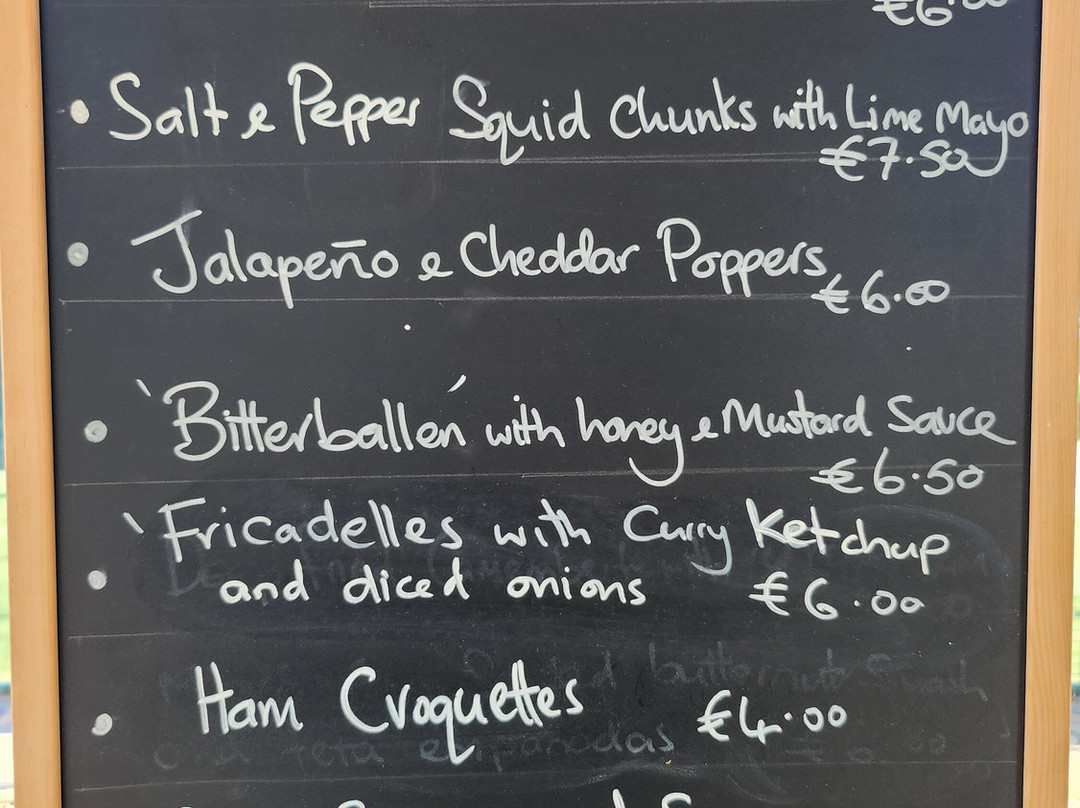 €6.00
• Salt & Pepper Squid Chunks with Lime Mayo
€7.50
• Jalapeño & Cheddar Poppers
€6.00
• 'Bitterballen' with honey & Mustard Sauce
€6.50
• 'Fricadelles with Curry Ketchup
and diced onions €6.00
• Ham Croquettes €4.00